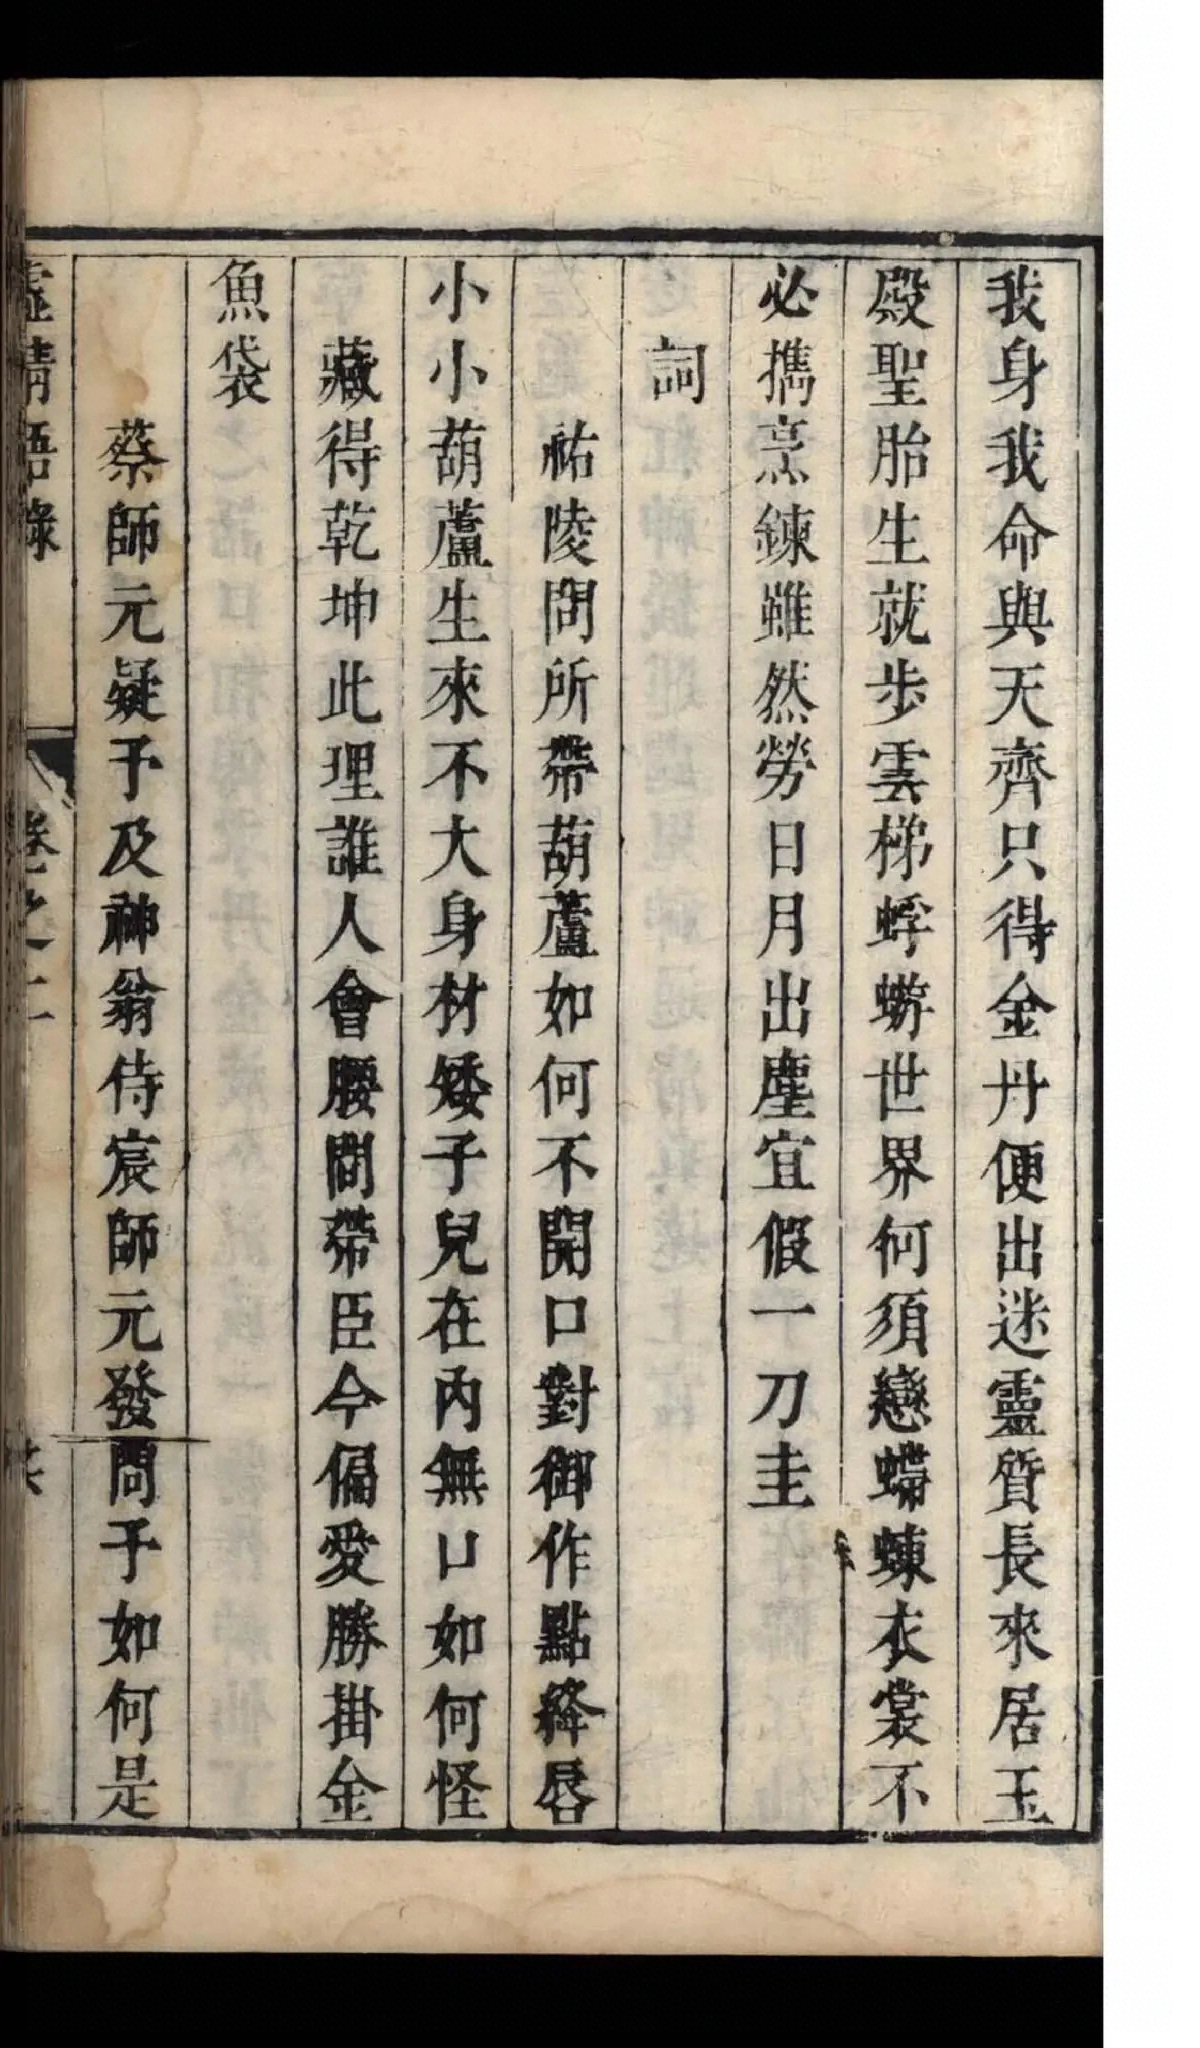 我身我命與天齊只得金丹便出迷靈質長來居玉
殿聖胎生就步雲梯蜉蝣世界何須戀蠕蝀衣裳不
必攜烹鍊雖然勞日月出塵宜假一刀圭
詞
祐陵問所帶葫蘆如何不開口對御作點絳唇
小小葫蘆生來不大身材矮子兒在內無口如何怪
藏得乾坤此理誰人會腰間帶臣今偏愛勝掛金
魚袋
蔡師元疑予及神翁侍宸師元發問予如何是
虛靖語錄
卷之二